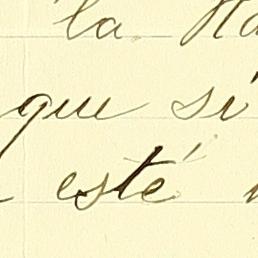 la
que si
esté